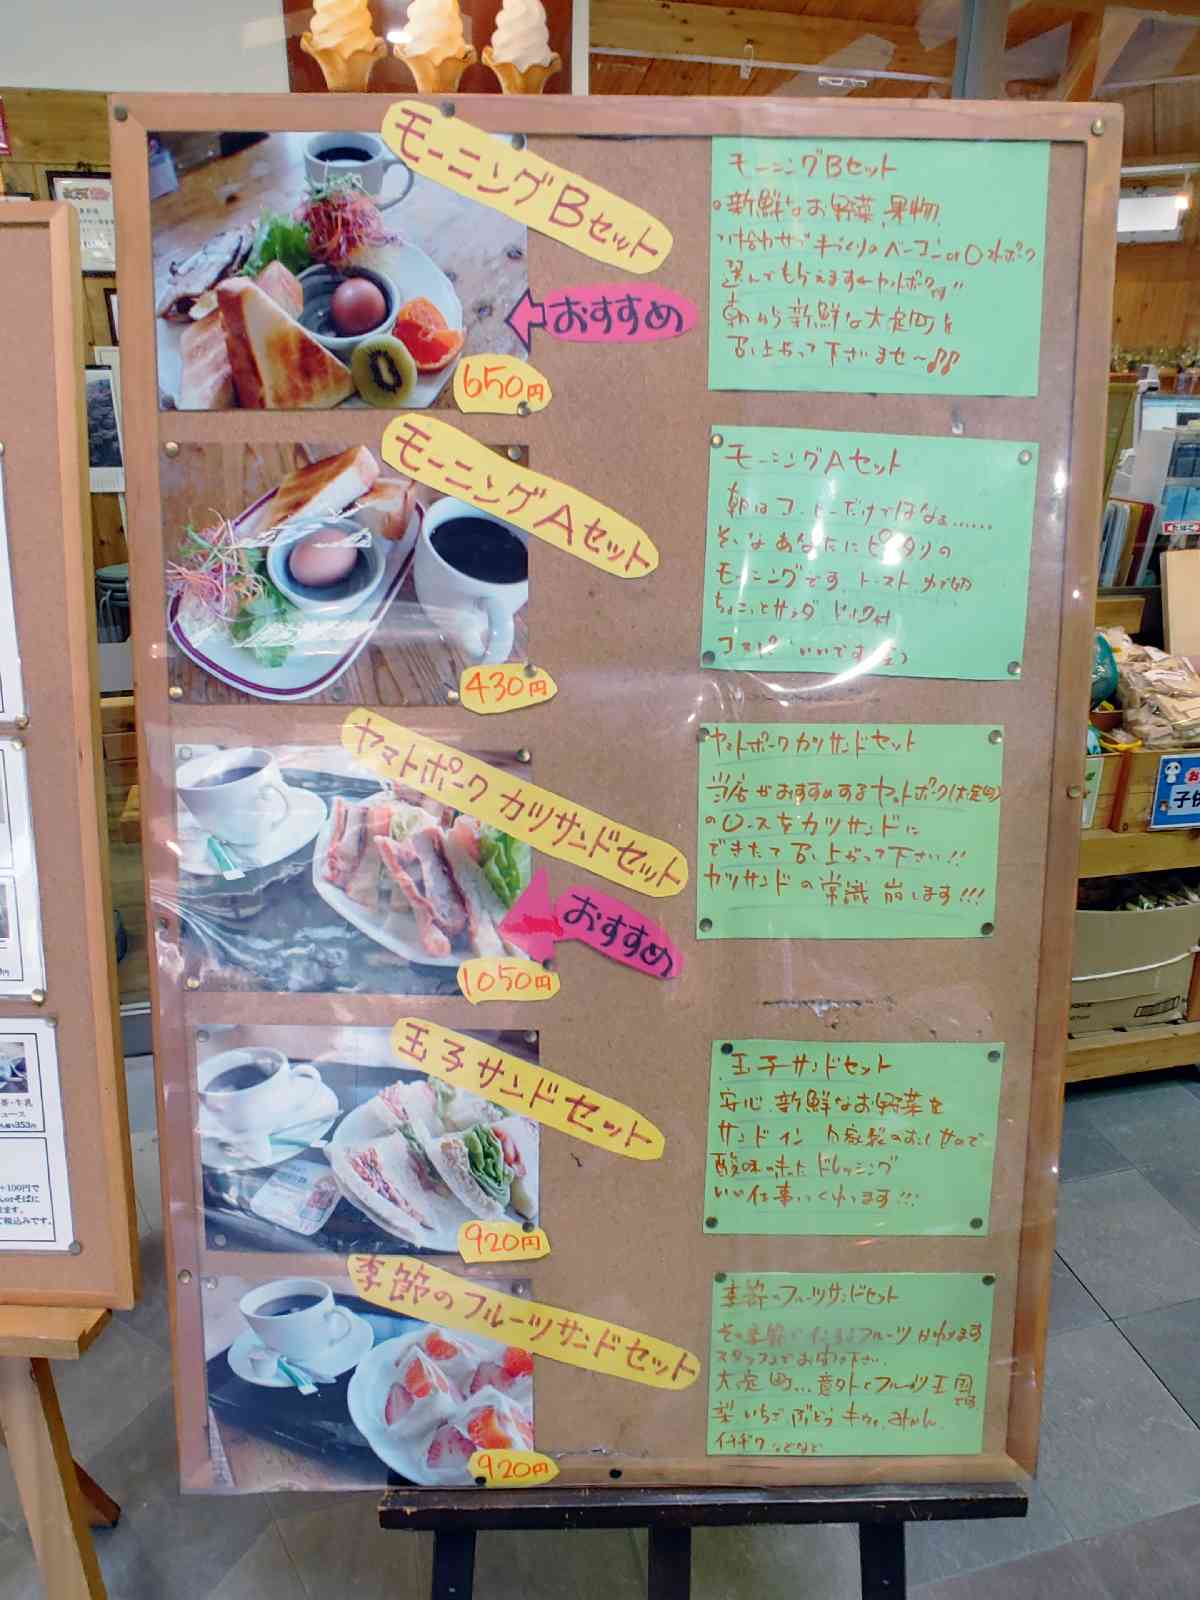 モーニングBセット
おすすめ
650円
モーニングBセット
新鮮なお野菜、果物、
付け合わせで手づくりのベーコンorロースポーク
選んでもらえます←ヤマトポークです!!
朝から新鮮な大淀町を
召し上がって下さいませ～♪♪
モーニングAセット
430円
モーニングAセット
朝はコーヒーだけではなぁ……
そんなあなたにピッタリの
モーニングです。トースト、ゆで卵
ちょこっとサラダ ドリンク付
コスパ いいです(笑)
ヤマトポークカツサンドセット
おすすめ
1050円
ヤマトポークカツサンドセット
当店がおすすめするヤマトポーク(大淀町)
のロースをカツサンドに
できたて召し上がって下さい!!
カツサンドの常識 崩します!!!
玉子サンドセット
920円
玉子サンドセット
安心、新鮮なお野菜を
サンドイン 自家製の
酸味の ドレッシング
いい仕事してくれてます!!!
季節のフルーツサンドセット
920円
季節のフルーツサンドセット
その季節で フルーツ かわります
スタッフまでお 下さい。
大淀町…意外とフルーツ王国です。
梨、いちご、ぶどう、キウィ、みかん、
イチジク などなど
+100円で
税込みです。